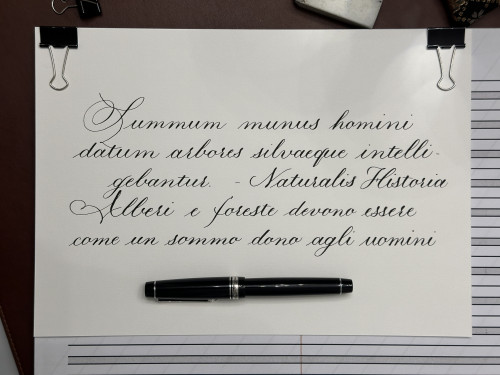 Summum munus homini
datum arbores silvaeque intelli-
gebantur. - Naturalis Historia
Alberi e foreste devono essere
come un sommo dono agli uomini